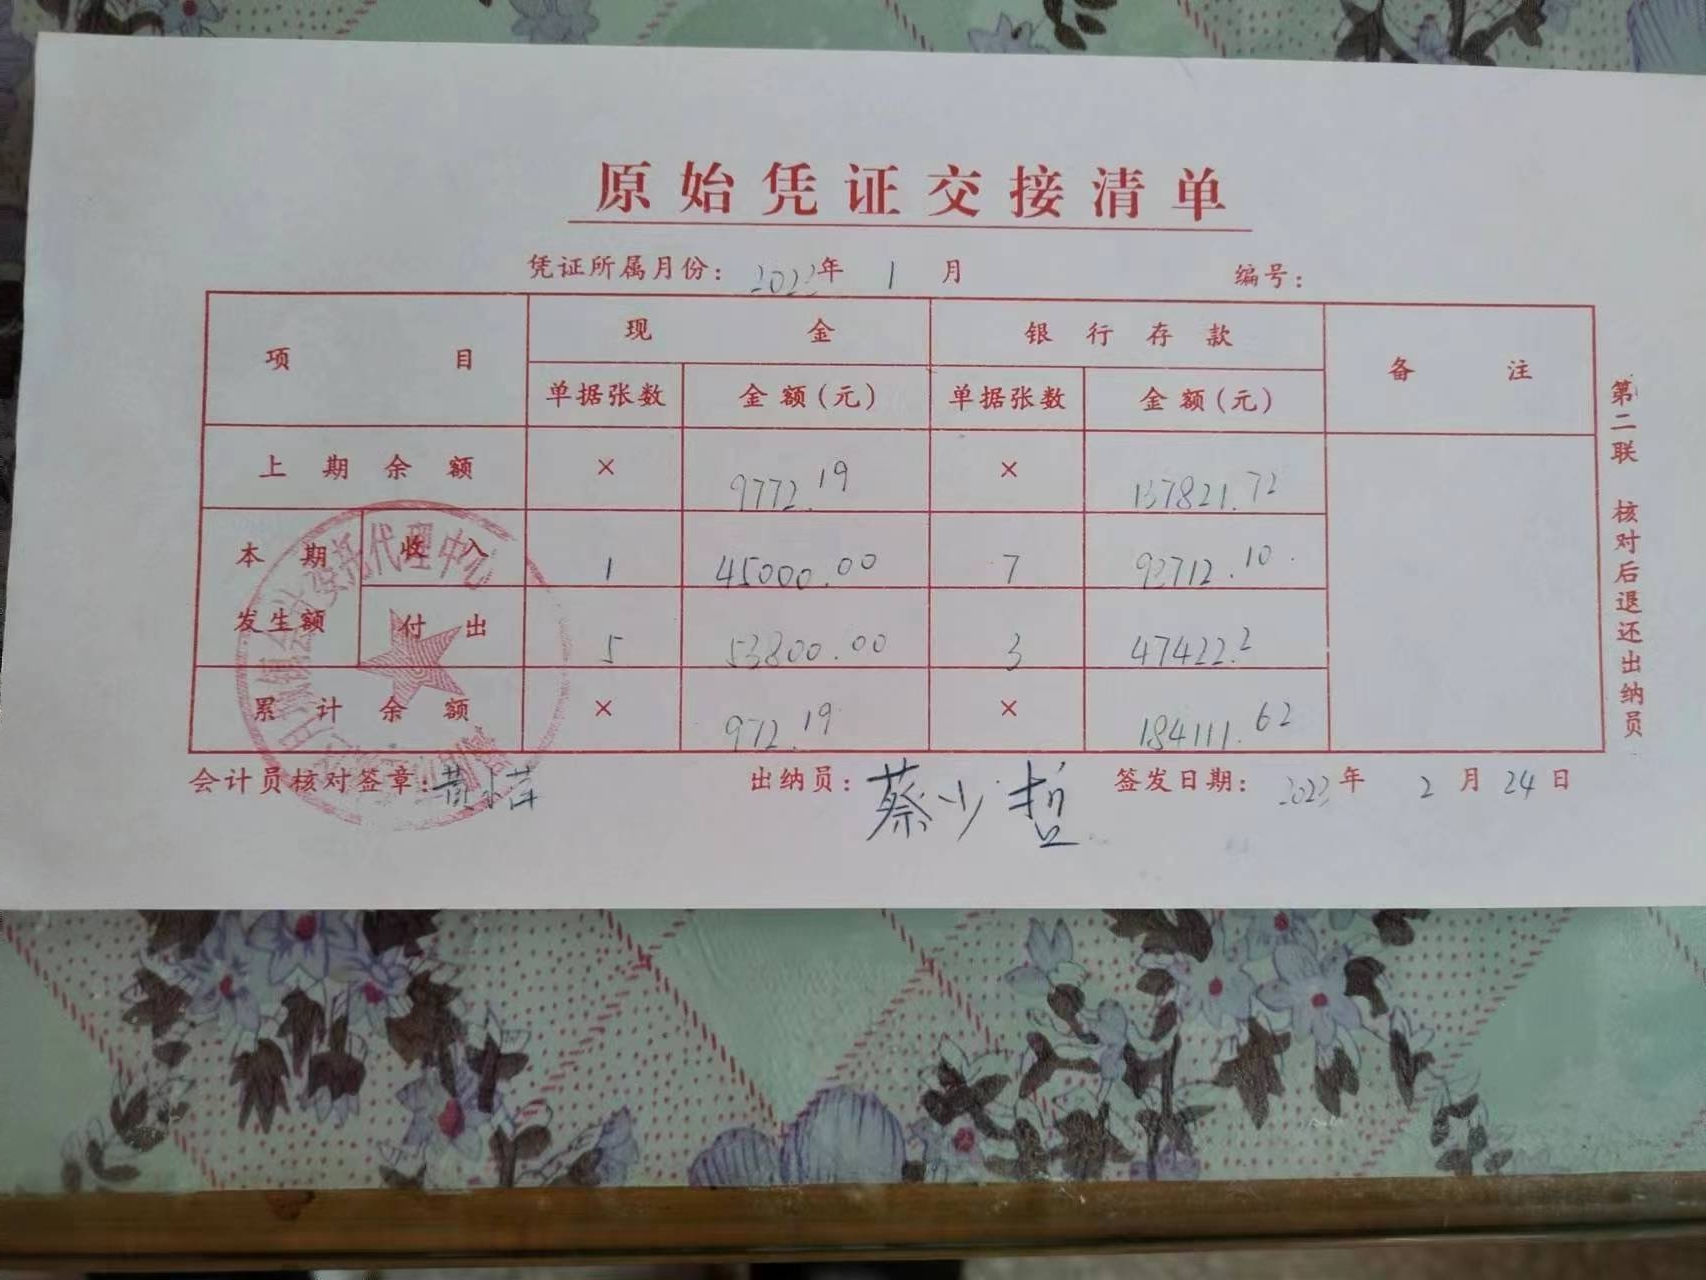 原始凭证交接清单
凭证所属月份： 2023年 1 月 编号：
项 目 现 金 银行存款 备 注
单据张数 金额(元) 单据张数 金额(元)
上期余额 × 9772.19 × 137821.72
本期发生额 收入 1 45000.00 7 93712.10
付出 5 53800.00 3 47422.2
累计余额 × 972.19 × 184111.62
会计员核对签章： 出纳员：蔡少哲 签发日期：2023年 2 月 24 日
第二联 核对后退还出纳员
代理中心